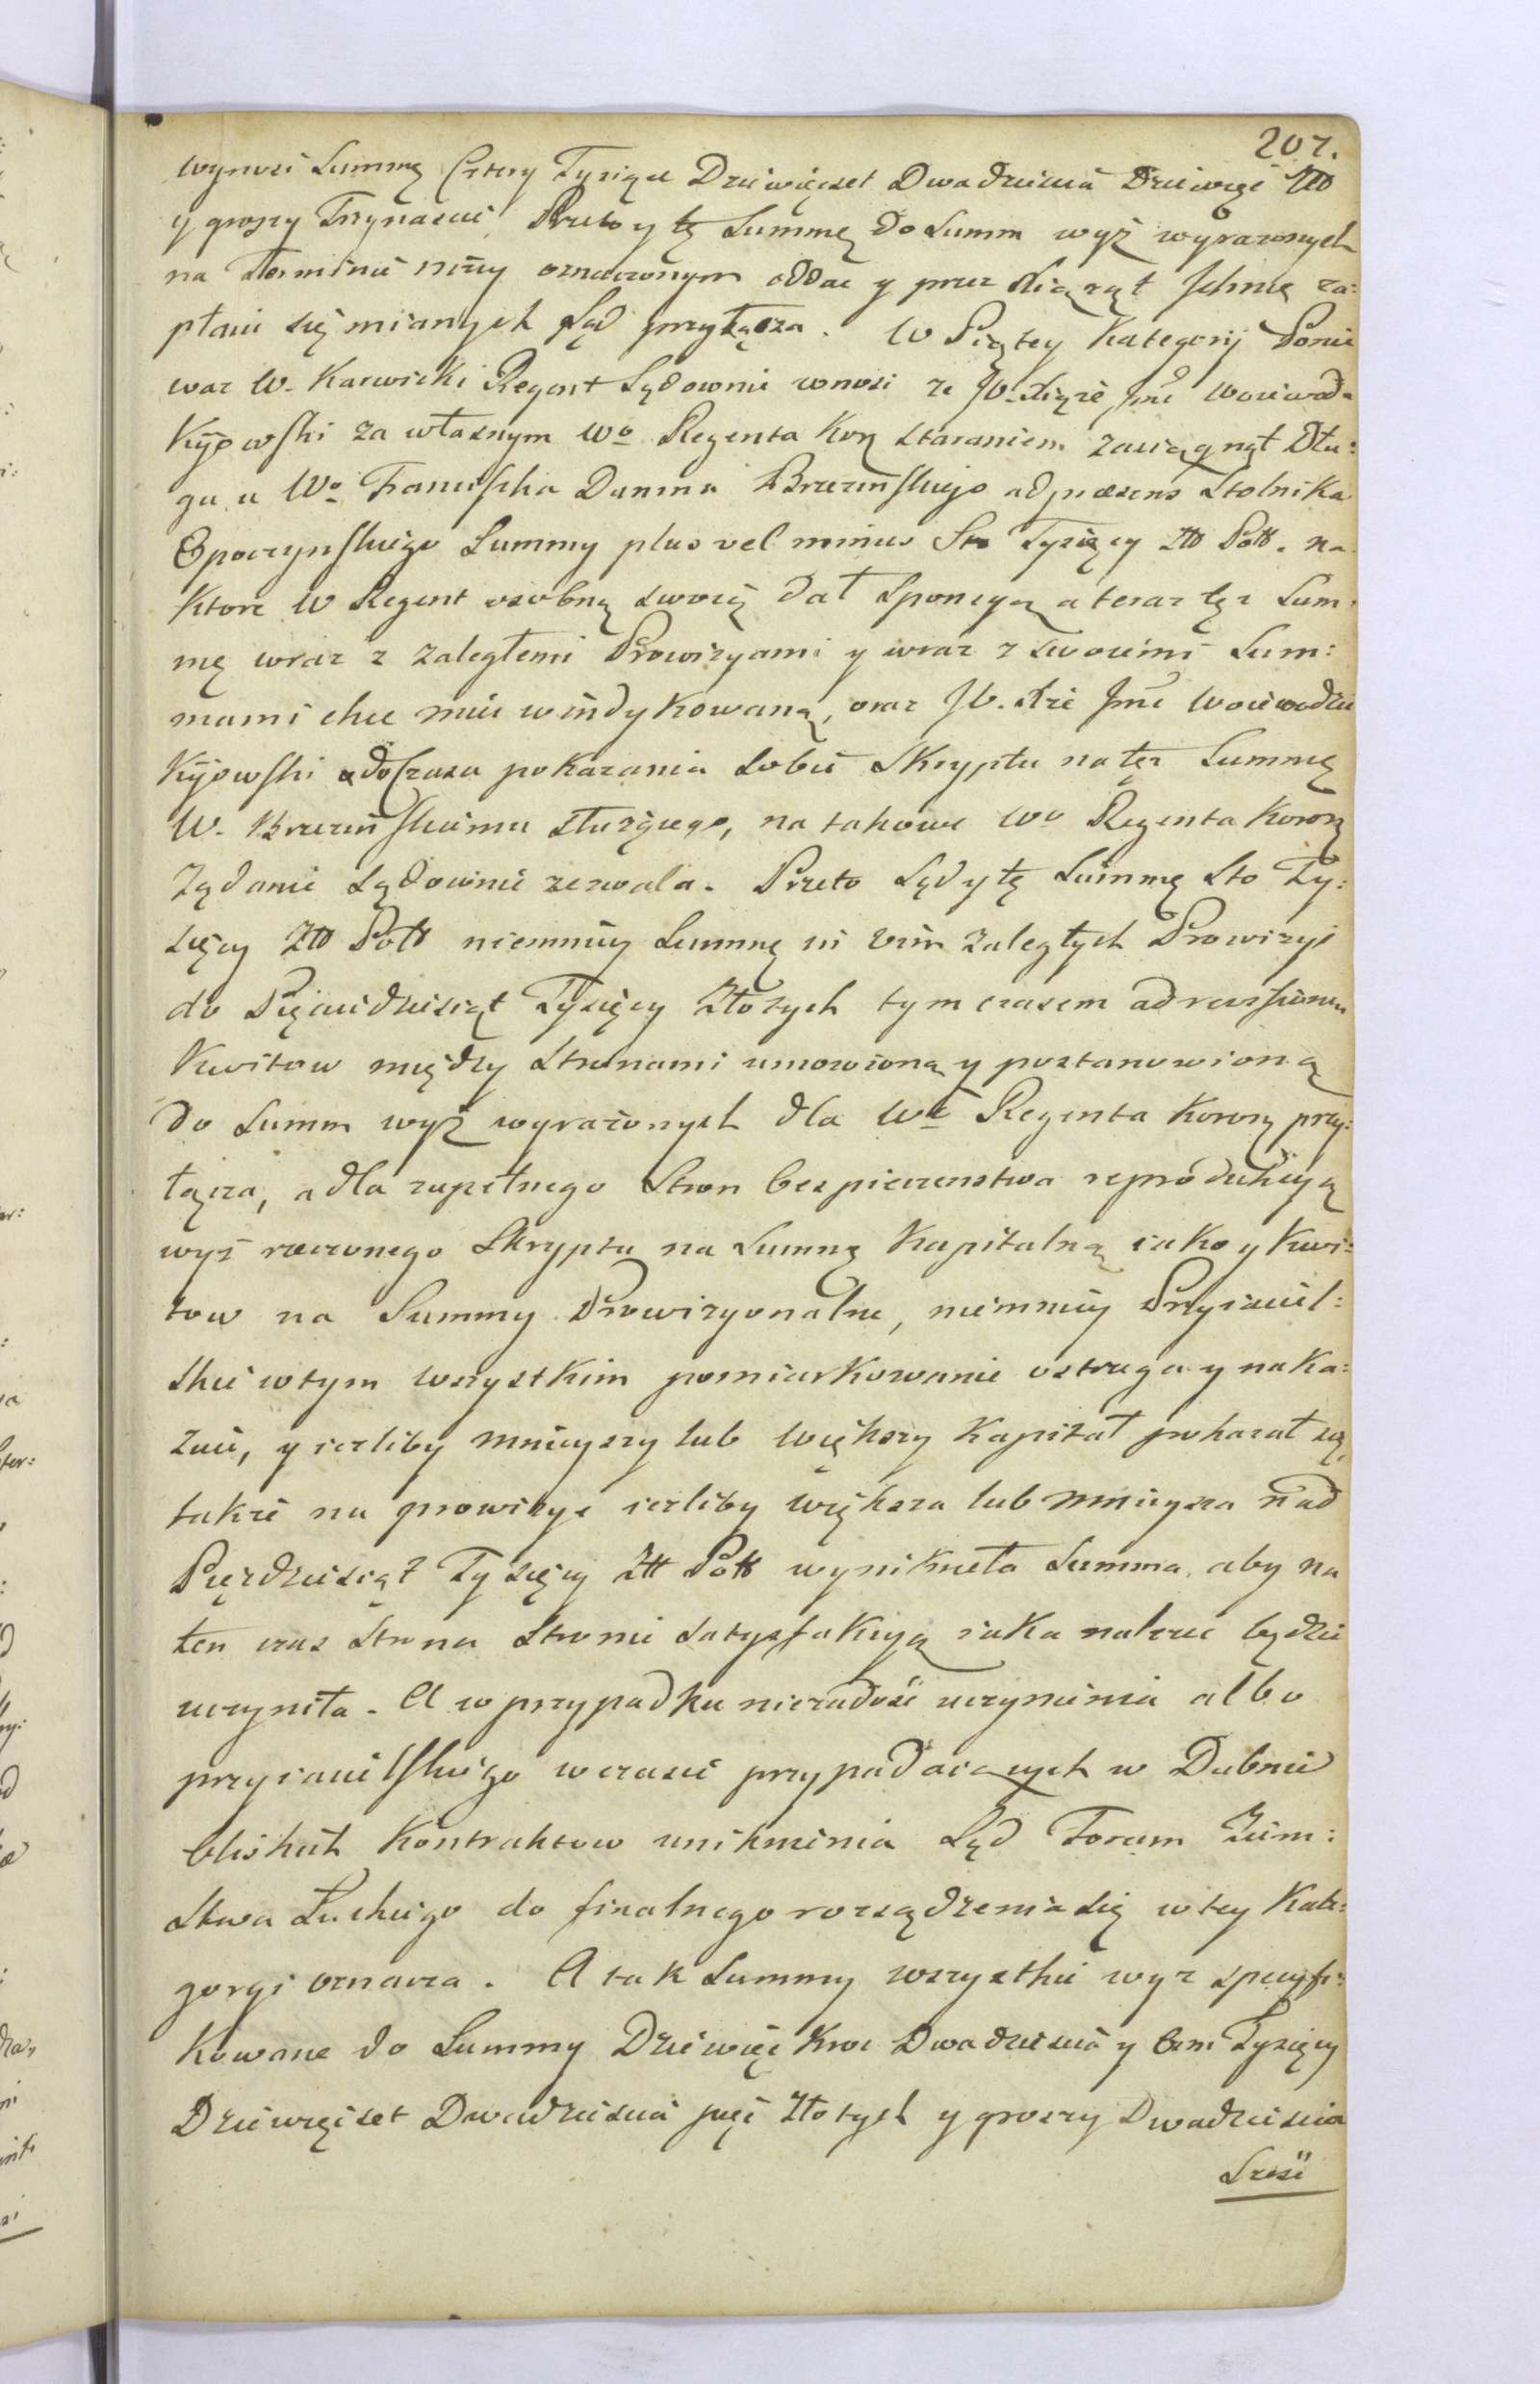 207.
wynosi Summę Cztery Tysiące Dziewięćset Dwadzieścia Dziewięć Złł
y groszy Trzynaście, Przeto y tę Summę do Summ wyż wyrazonych
na Terminie niżey oznaczonym oddać y przez Xiążąt Jchmć za:
płacić się mianych Sąd przyłącza. W Piątey Kategorij Ponie
waz W. Karwicki Regent Sądownie wnosi ze JW. Xiąże Jmć Woiewoda
Kijowski za własnym Wo Regenta Kor staraniem zaciągnął Dłu:
gu u Wo Franciszka Dunina Brzezinskiego ad præsens Stolnika
Opoczynskiego Summy plus vel minus Sto Tysięcy Złł Poll. na
ktore W Regent osobną swoię dał Sponcyą a teraz tęz Sum:
mę wraz z zaległemi Prowizyami y wraz z swoiemi Sum:
mami chce mieć windykowaną, oraz JW. Xże Jmć Woiewodzie
Kijowski do Czasu pokazania sobie Skryptu na tęz Summę
W. Brzezinskiemu służącego, na takowe Wo Regenta Koron
Żądanie Sądownie zezwala. Przeto Sąd y tę Summę Sto Ty:
sięcy Złł Poll niemniey Summę in vim zaległych Prowizyi
do Pięciudziesiąt Tysięcy Złotych tym czasem ad revisionem
Kwitow między Stronami umowioną y postanowioną
do Summ wyż wyrażonych dla Wo Regenta Koron przy:
łącza, a dla zupełnego Stron bespieczenstwa reprodukcyą
wyż rzeczonego Skryptu na Summę Kapitalną iako y Kwi:
tow na Summy Prowizyonalne, niemniey Przyiaciel:
skie w tym wszystkim pomiarkowanie ostrzega y naka:
zuie, y iezliby mnieyszy lub większy Kapitał pokazał się,
takze na prowizye iezliby większa lub mnieysza nad
Pięćdziesiąt Tysięcy Złł Poll wyniknęła Summa, aby na
ten czas Strona Stronie Satysfakcyą iaka nalezec będzie
uczyniła. A w przypadku niezadosć uczynienia albo
przyiacielskiego w czasie przypadaiących w Dubnie
bliskich Kontraktow uniknienia Sąd Forum Ziem:
stwa Łuckiego do finalnego rozsądzenia się w tey Kate:
goryi oznacza. A tak Summy wszystkie wyz specyfi:
kowane do Summy Dziewięć Kroc Dwadziescia y Osm Tysięcy
Dziewięcset Dwadziescia pięć Złotych y groszy Dwadziescia
Szesć